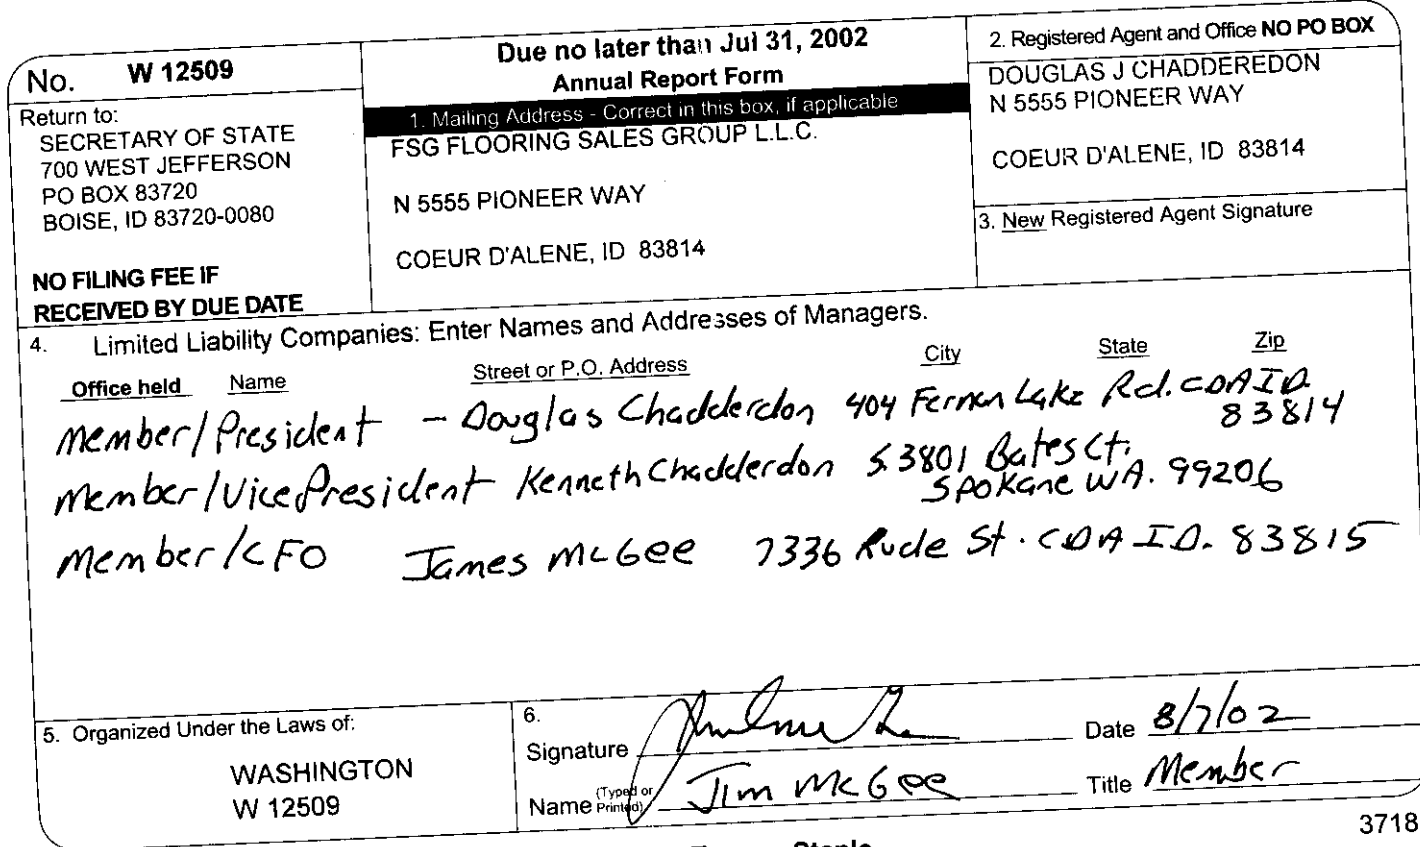 No. W 12509
Return to:
SECRETARY OF STATE
700 WEST JEFFERSON
PO BOX 83720
BOISE, ID 83720-0080
NO FILING FEE IF
RECEIVED BY DUE DATE
Due no later than Jul 31, 2002
Annual Report Form
1. Mailing Address - Correct in this box, if applicable
FSG FLOORING SALES GROUP L.L.C.
N 5555 PIONEER WAY
COEUR D'ALENE, ID 83814
2. Registered Agent and Office NO PO BOX
DOUGLAS J CHADDEREDON
N 5555 PIONEER WAY
COEUR D'ALENE, ID 83814
3. New Registered Agent Signature
4. Limited Liability Companies: Enter Names and Addresses of Managers.
Office held Name Street or P.O. Address City State Zip
Member/President - Douglas Chadderdon 404 Fernan Lake Rd. CDA ID.
83814
Member/Vice President Kenneth Chadderdon S. 3801 Bates Ct.
Spokane WA. 99206
Member/CFO James McGee 7336 Rude St. CDA ID. 83815
5. Organized Under the Laws of:
WASHINGTON
W 12509
6.
Signature
Date 8/7/02
Name (Typed or Printed) Jim McGee
Title Member
3718